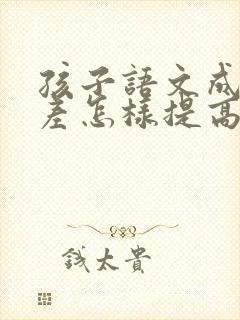 孩子語文成
差怎樣提高
錢太貴